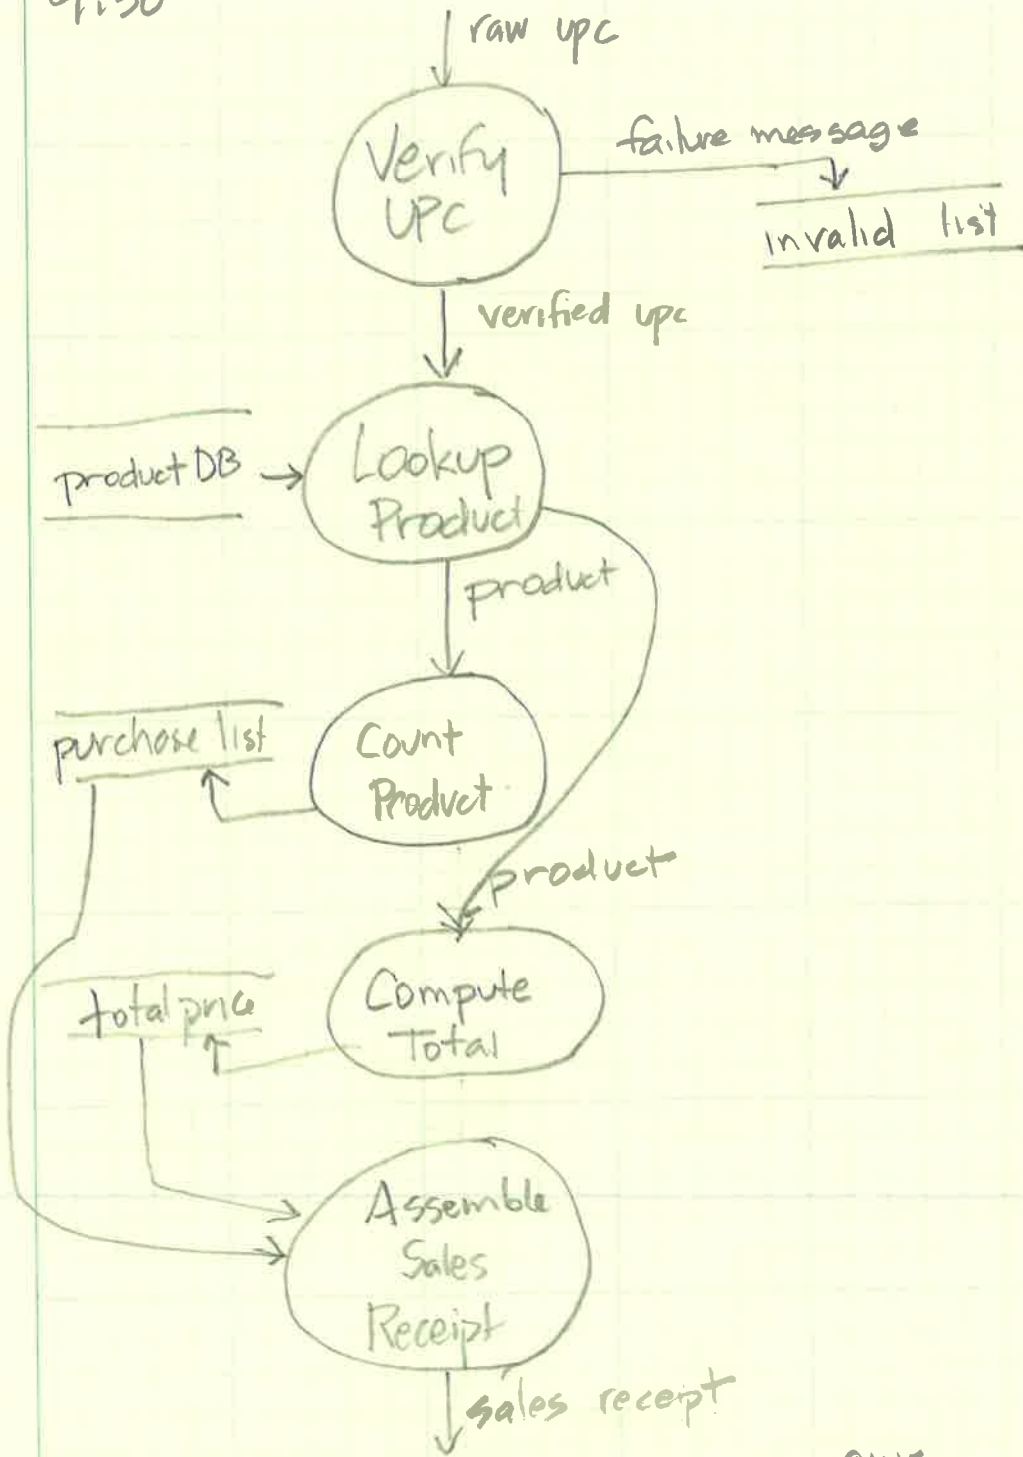 raw upc
Verify
UPC
failure message
invalid list
verified upc
productDB
Lookup
Product
product
purchase list
Count
Product
product
total price
Compute
Total
Assemble
Sales
Receipt
sales receipt